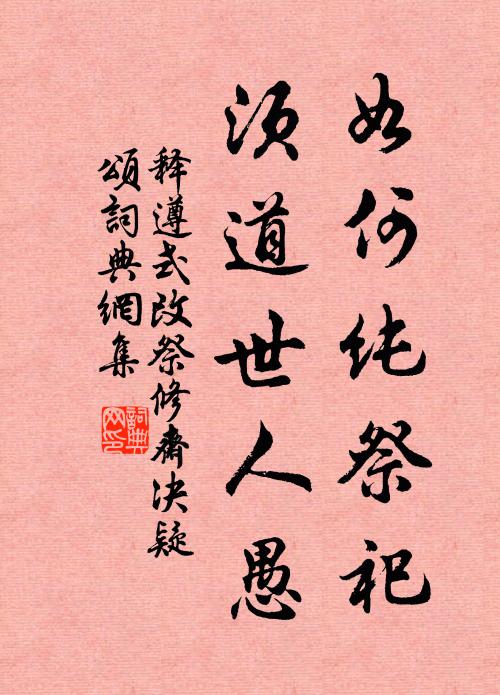 如何纯祭祀
须道世人愚
释遵式改祭修斋决疑
颂词典網集
詞典网印